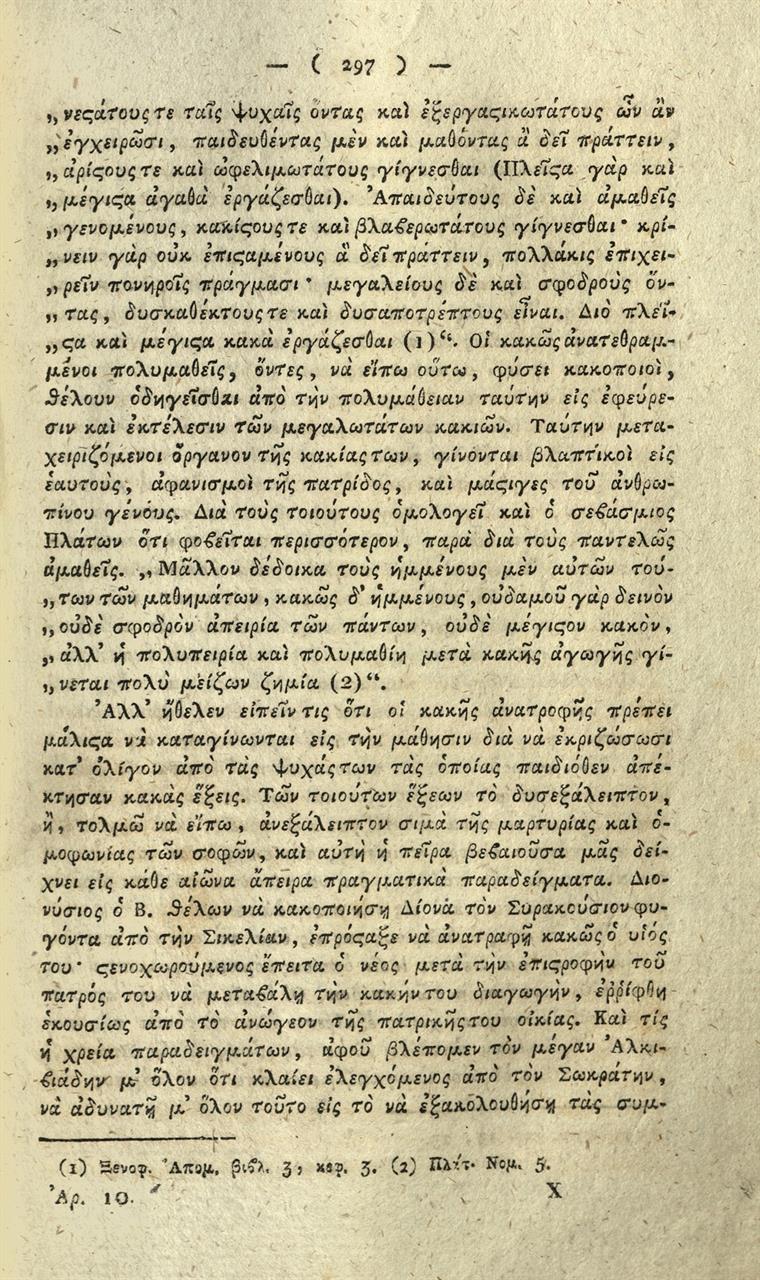 — ( 297 ) —
„νεςάτους τε ταῖς ψυχαῖς ὄντας καὶ ἐξεργαςικωτάτους ὧν ἂν
„ἐγχειρῶσι, παιδευθέντας μὲν καὶ μαθόντας ἃ δεῖ πράττειν,
„ἀρίςους τε καὶ ὠφελιμωτάτους γίγνεσθαι (Πλεῖςα γὰρ καὶ
„μέγιςα ἀγαθὰ ἐργάζεσθαι). Ἀπαιδεύτους δὲ καὶ ἀμαθεῖς
„γενομένους, κακίςους τε καὶ βλαϐερωτάτους γίγνεσθαι· κρί-
„νειν γὰρ οὐκ ἐπιςαμένους ἃ δεῖ πράττειν, πολλάκις ἐπιχει-
„ρεῖν πονηροῖς πράγμασι· μεγαλείους δὲ καὶ σφοδροὺς ὄν-
„τας, δυσκαθέκτους τε καὶ δυσαποτρέπτους εἶναι. Διὸ πλεῖ-
„ςα καὶ μέγιςα κακὰ ἐργάζεσθαι (1)“. Οἱ κακῶς ἀνατεθραμ-
μένοι πολυμαθεῖς, ὄντες, νὰ εἴπω οὕτω, φύσει κακοποιοὶ,
ϑέλουν ὁδηγεῖσθαι ἀπὸ τὴν πολυμάθειαν ταύτην εἰς ἐφεύρε-
σιν καὶ ἐκτέλεσιν τῶν μεγαλωτάτων κακιῶν. Ταύτην μετα-
χειριζόμενοι ὄργανον τῆς κακίας των, γίνονται βλαπτικοὶ εἰς
ἑαυτοὺς, ἀφανισμοὶ τῆς πατρίδος, καὶ μάςιγες τοῦ ἀνθρω-
πίνου γένους. Διὰ τοὺς τοιούτους ὁμολογεῖ καὶ ὁ σεϐάσμιος
Πλάτων ὅτι φοϐεῖται περισσότερον, παρὰ διὰ τοὺς παντελῶς
ἀμαθεῖς. „Μᾶλλον δέδοικα τοὺς ἡμμένους μὲν αὐτῶν τού-
„των τῶν μαθημάτων, κακῶς δ' ἡμμένους, οὐδαμοῦ γὰρ δεινὸν
„οὐδὲ σφοδρὸν ἀπειρία τῶν πάντων, οὐδὲ μέγιςον κακὸν,
„ἀλλ' ἡ πολυπειρία καὶ πολυμαθίη μετὰ κακῆς ἀγωγῆς γί-
„νεται πολὺ μείζων ζημία (2)“.
Ἀλλ' ἤθελεν εἰπεῖν τις ὅτι οἱ κακῆς ἀνατροφῆς πρέπει
μάλιςα νὰ καταγίνωνται εἰς τὴν μάθησιν διὰ νὰ ἐκριζώσωσι
κατ' ὀλίγον ἀπὸ τὰς ψυχάς των τὰς ὁποίας παιδιόθεν ἀπέ-
κτησαν κακὰς ἕξεις. Τῶν τοιούτων ἕξεων τὸ δυσεξάλειπτον,
ἢ, τολμῶ νὰ εἴπω, ἀνεξάλειπτον σιμὰ τῆς μαρτυρίας καὶ ὁ-
μοφωνίας τῶν σοφῶν, καὶ αὐτὴ ἡ πεῖρα βεϐαιοῦσα μᾶς δεί-
χνει εἰς κάθε αἰῶνα ἄπειρα πραγματικὰ παραδείγματα. Διο-
νύσιος ὁ Β. ϑέλων νὰ κακοποιήσῃ Δίονὰ τὸν Συρακούσιον φυ-
γόντα ἀπὸ τὴν Σικελίαν, ἐπρόςαξε νὰ ἀνατραφῇ κακῶς ὁ υἱός
του· ςενοχωρούμενος ἔπειτα ὁ νέος μετὰ τὴν ἐπιςροφὴν τοῦ
πατρός του νὰ μεταϐάλῃ τὴν κακήν του διαγωγὴν, ἐῤῥίφθη
ἑκουσίως ἀπὸ τὸ ἀνώγεον τῆς πατρικῆς του οἰκίας. Καὶ τίς
ἡ χρεία παραδειγμάτων, ἀφοῦ βλέπομεν τὸν μέγαν Ἀλκι-
ϐιάδην μ' ὅλον ὅτι κλαίει ἐλεγχόμενος ἀπὸ τὸν Σωκράτην,
νὰ ἀδυνατῇ μ' ὅλον τοῦτο εἰς τὸ νὰ ἐξακολουθήσῃ τὰς συμ-
(1) Ξενοφ. Ἀπομ. βιϐλ. 3, κεφ. 3. (2) Πλάτ. Νομ. 5.
Ἀρ. 10. X